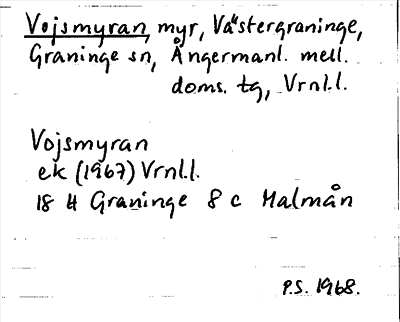 Vojsmyran, myr, Västergraninge,
Graninge sn, Ångermanl. mell.
doms. tg, Vrnl.l.
Vojsmyran
ek (1967) Vrnl.l.
18 H Graninge 8 c Malmån
P.S. 1968.